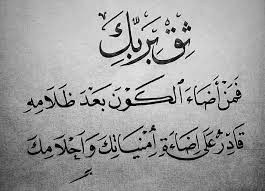 ثِقْ بِرَبِّكِ
فَمَنْ أَضَاءَ ٱلكَوْنَ بَعْدَ ظَلَامِهِ
قَادِرٌ عَلَى إِضَاءَةِ أُمْنِيَاتِكَ وَأَحْلَامِكَ